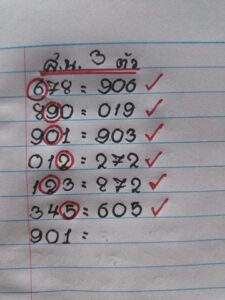 ส.น. 3 ตัว
678 = 906 ✓
890 = 019 ✓
901 = 903 ✓
012 = 272 ✓
123 = 872 ✓
345 = 605 ✓
901 =